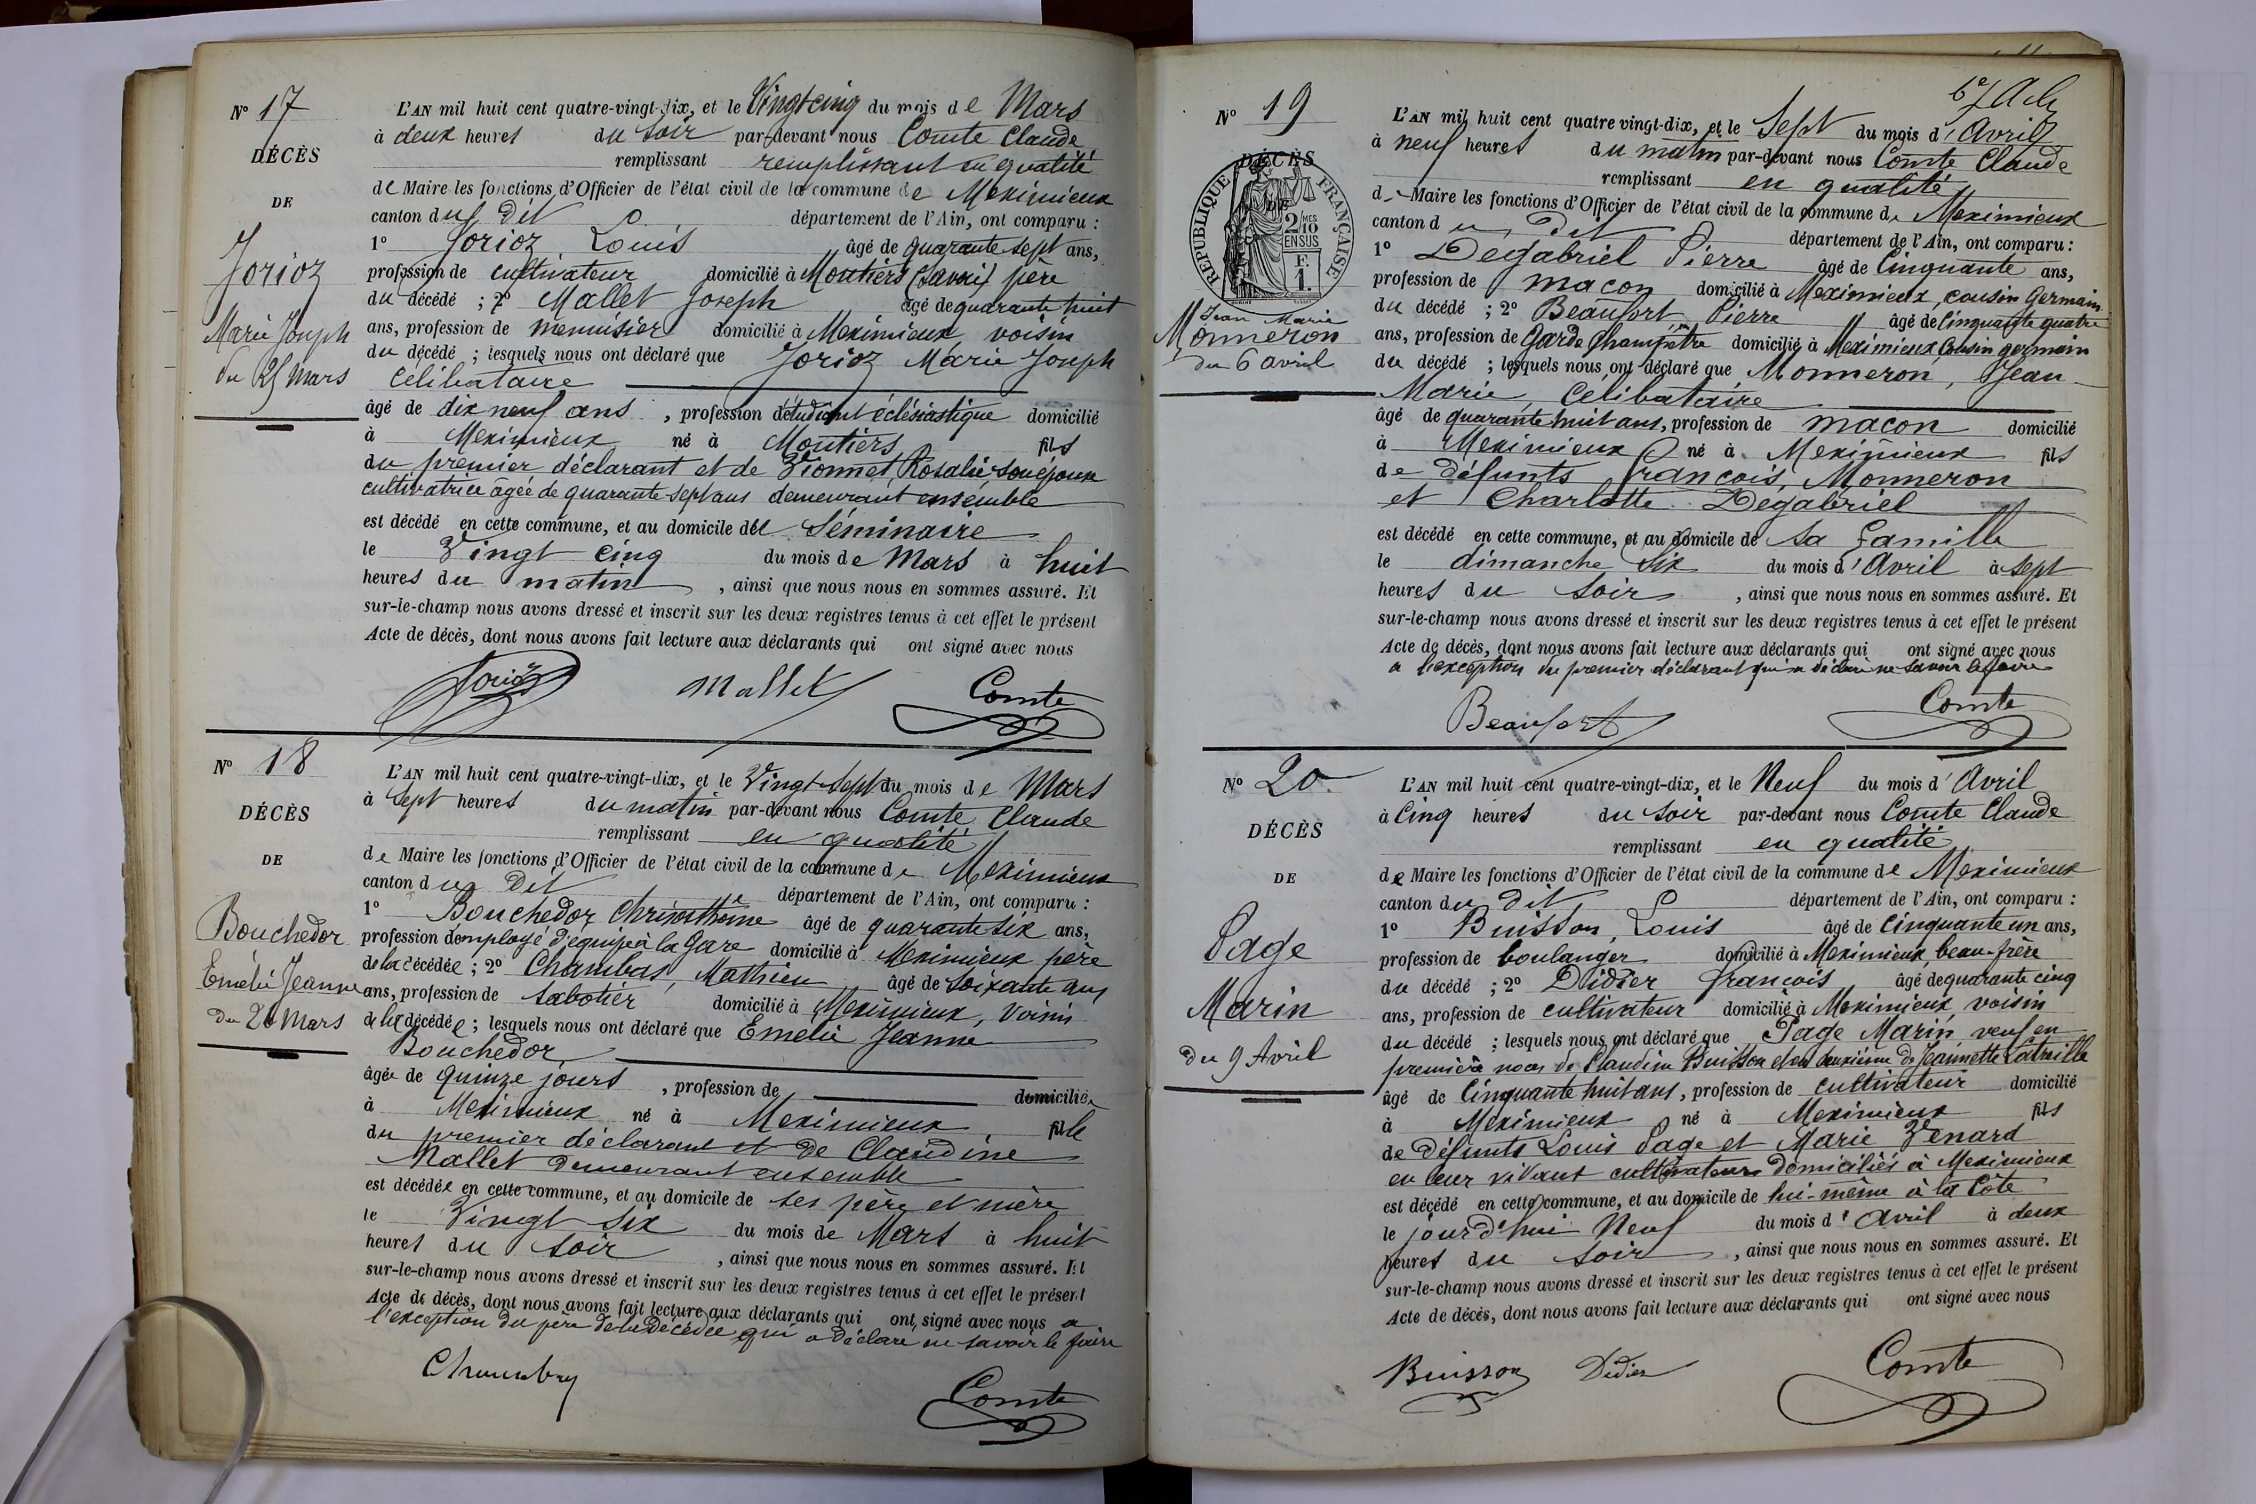 N° 17
DÉCÈS
DE
Jorioz
Marie Joseph
du 25 Mars
L'AN mil huit cent quatre-vingt-dix, et le Vingt cinq du mois de Mars
à deux heures du soir par-devant nous Comte Claude
remplissant remplissant en qualité
de Maire les fonctions d'Officier de l'état civil de la commune de Meximieux
canton du dit département de l'Ain, ont comparu :
1° Jorioz Louis âgé de quarante sept ans,
profession de cultivateur domicilié à Moutiers (Savoie) père
du décédé ; 2° Mallet Joseph âgé de quarante huit
ans, profession de menuisier domicilié à Meximieux voisin
du décédé ; lesquels nous ont déclaré que Jorioz Marie Joseph
célibataire
âgé de dix neuf ans , profession d'étudiant éclésiastique domicilié
à Meximieux né à Moutiers fils
du premier déclarant et de Vionnet, Rosalie son épouse
cultivatrice âgée de quarante sept ans demeurant ensemble
est décédé en cette commune, et au domicile del Séminaire
le Vingt cinq du mois de Mars à huit
heures du matin , ainsi que nous nous en sommes assuré. Et
sur-le-champ nous avons dressé et inscrit sur les deux registres tenus à cet effet le présent
Acte de décès, dont nous avons fait lecture aux déclarants qui ont signé avec nous
Jorioz Mallet Comte
N° 18
DÉCÈS
DE
Bouchedor
Emélie Jeanne
du 26 Mars
L'AN mil huit cent quatre-vingt-dix, et le Vingt-sept du mois de Mars
à Sept heures du matin par-devant nous Comte Claude
remplissant en qualité
de Maire les fonctions d'Officier de l'état civil de la commune de Meximieux
canton du dit département de l'Ain, ont comparu :
1° Bouchedor âgé de quarante six ans,
profession d'employé d'équipe à la Gare domicilié à Meximieux père
de la décédée ; 2° Chambas, Mathieu âgé de Soixante ans
ans, profession de sabotier domicilié à Meximieux, voisin
de la décédée ; lesquels nous ont déclaré que Emélie Jeanne
Bouchedor
âgée de quinze jours , profession de domiciliée
à Meximieux né à Meximieux fille
du premier déclarant et de Claudine
Mallet demeurant ensemble
est décédée en cette commune, et au domicile de ses père et mère
le Vingt six du mois de Mars à huit
heures du soir , ainsi que nous nous en sommes assuré. Et
sur-le-champ nous avons dressé et inscrit sur les deux registres tenus à cet effet le présent
Acte de décès, dont nous avons fait lecture aux déclarants qui ont signé avec nous a
l'exception du père de la décédée qui a déclaré ne savoir le faire
Comte
N° 19
DÉCÈS
DE
RÉPUBLIQUE FRANÇAISE
2/10 MES
EN SUS
F.
1.
Jean Marie
Monneron
du 6 avril
L'AN mil huit cent quatre vingt-dix, et le Sept du mois d'Avril
à neuf heures du matin par-devant nous Comte Claude
remplissant en qualité
de Maire les fonctions d'Officier de l'état civil de la commune de Meximieux
canton du dit département de l'Ain, ont comparu :
1° Degabriel Pierre âgé de Cinquante ans,
profession de macon domicilié à Meximieux, cousin Germain
du décédé ; 2° Beaufort Pierre âgé de Cinquante quatre
ans, profession de Garde Champêtre domicilié à Meximieux Cousin germain
du décédé ; lesquels nous ont déclaré que Monneron, Jean
Marie, Célibataire
âgé de quarante huit ans, profession de macon domicilié
à Meximieux né à Meximieux fils
de défunts François, Monneron
et Charlotte Degabriel
est décédé en cette commune, et au domicile de sa famille
le dimanche six du mois d'Avril à sept
heures du soir , ainsi que nous nous en sommes assuré. Et
sur-le-champ nous avons dressé et inscrit sur les deux registres tenus à cet effet le présent
Acte de décès, dont nous avons fait lecture aux déclarants qui ont signé avec nous
a l'exception du premier déclarant qui a déclaré ne savoir le faire
Beaufort Comte
N° 20
DÉCÈS
DE
Page
Marin
du 9 Avril
L'AN mil huit cent quatre-vingt-dix, et le Neuf du mois d'Avril
à Cinq heures du soir par-devant nous Comte Claude
remplissant en qualité
de Maire les fonctions d'Officier de l'état civil de la commune de Meximieux
canton du dit département de l'Ain, ont comparu :
1° Buisson, Louis âgé de Cinquante un ans,
profession de boulanger domicilié à Meximieux, beau-frère
du décédé ; 2° Didier François âgé de quarante cinq
ans, profession de cultivateur domicilié à Meximieux, voisin
du décédé ; lesquels nous ont déclaré que Page Marin, veuf en
première noces de Claudine Buisson et en deuxième de Jeannette Latreille
âgé de Cinquante huit ans, profession de cultivateur domicilié
à Meximieux né à Meximieux fils
de défunts Louis Page et Marie Venard
en leur vivant cultivateurs domiciliés à Meximieux
est décédé en cette commune, et au domicile de lui-même à la Côte
le jourd'hui Neuf du mois d'Avril à deux
heures du soir , ainsi que nous nous en sommes assuré. Et
sur-le-champ nous avons dressé et inscrit sur les deux registres tenus à cet effet le présent
Acte de décès, dont nous avons fait lecture aux déclarants qui ont signé avec nous
Buisson Didier Comte